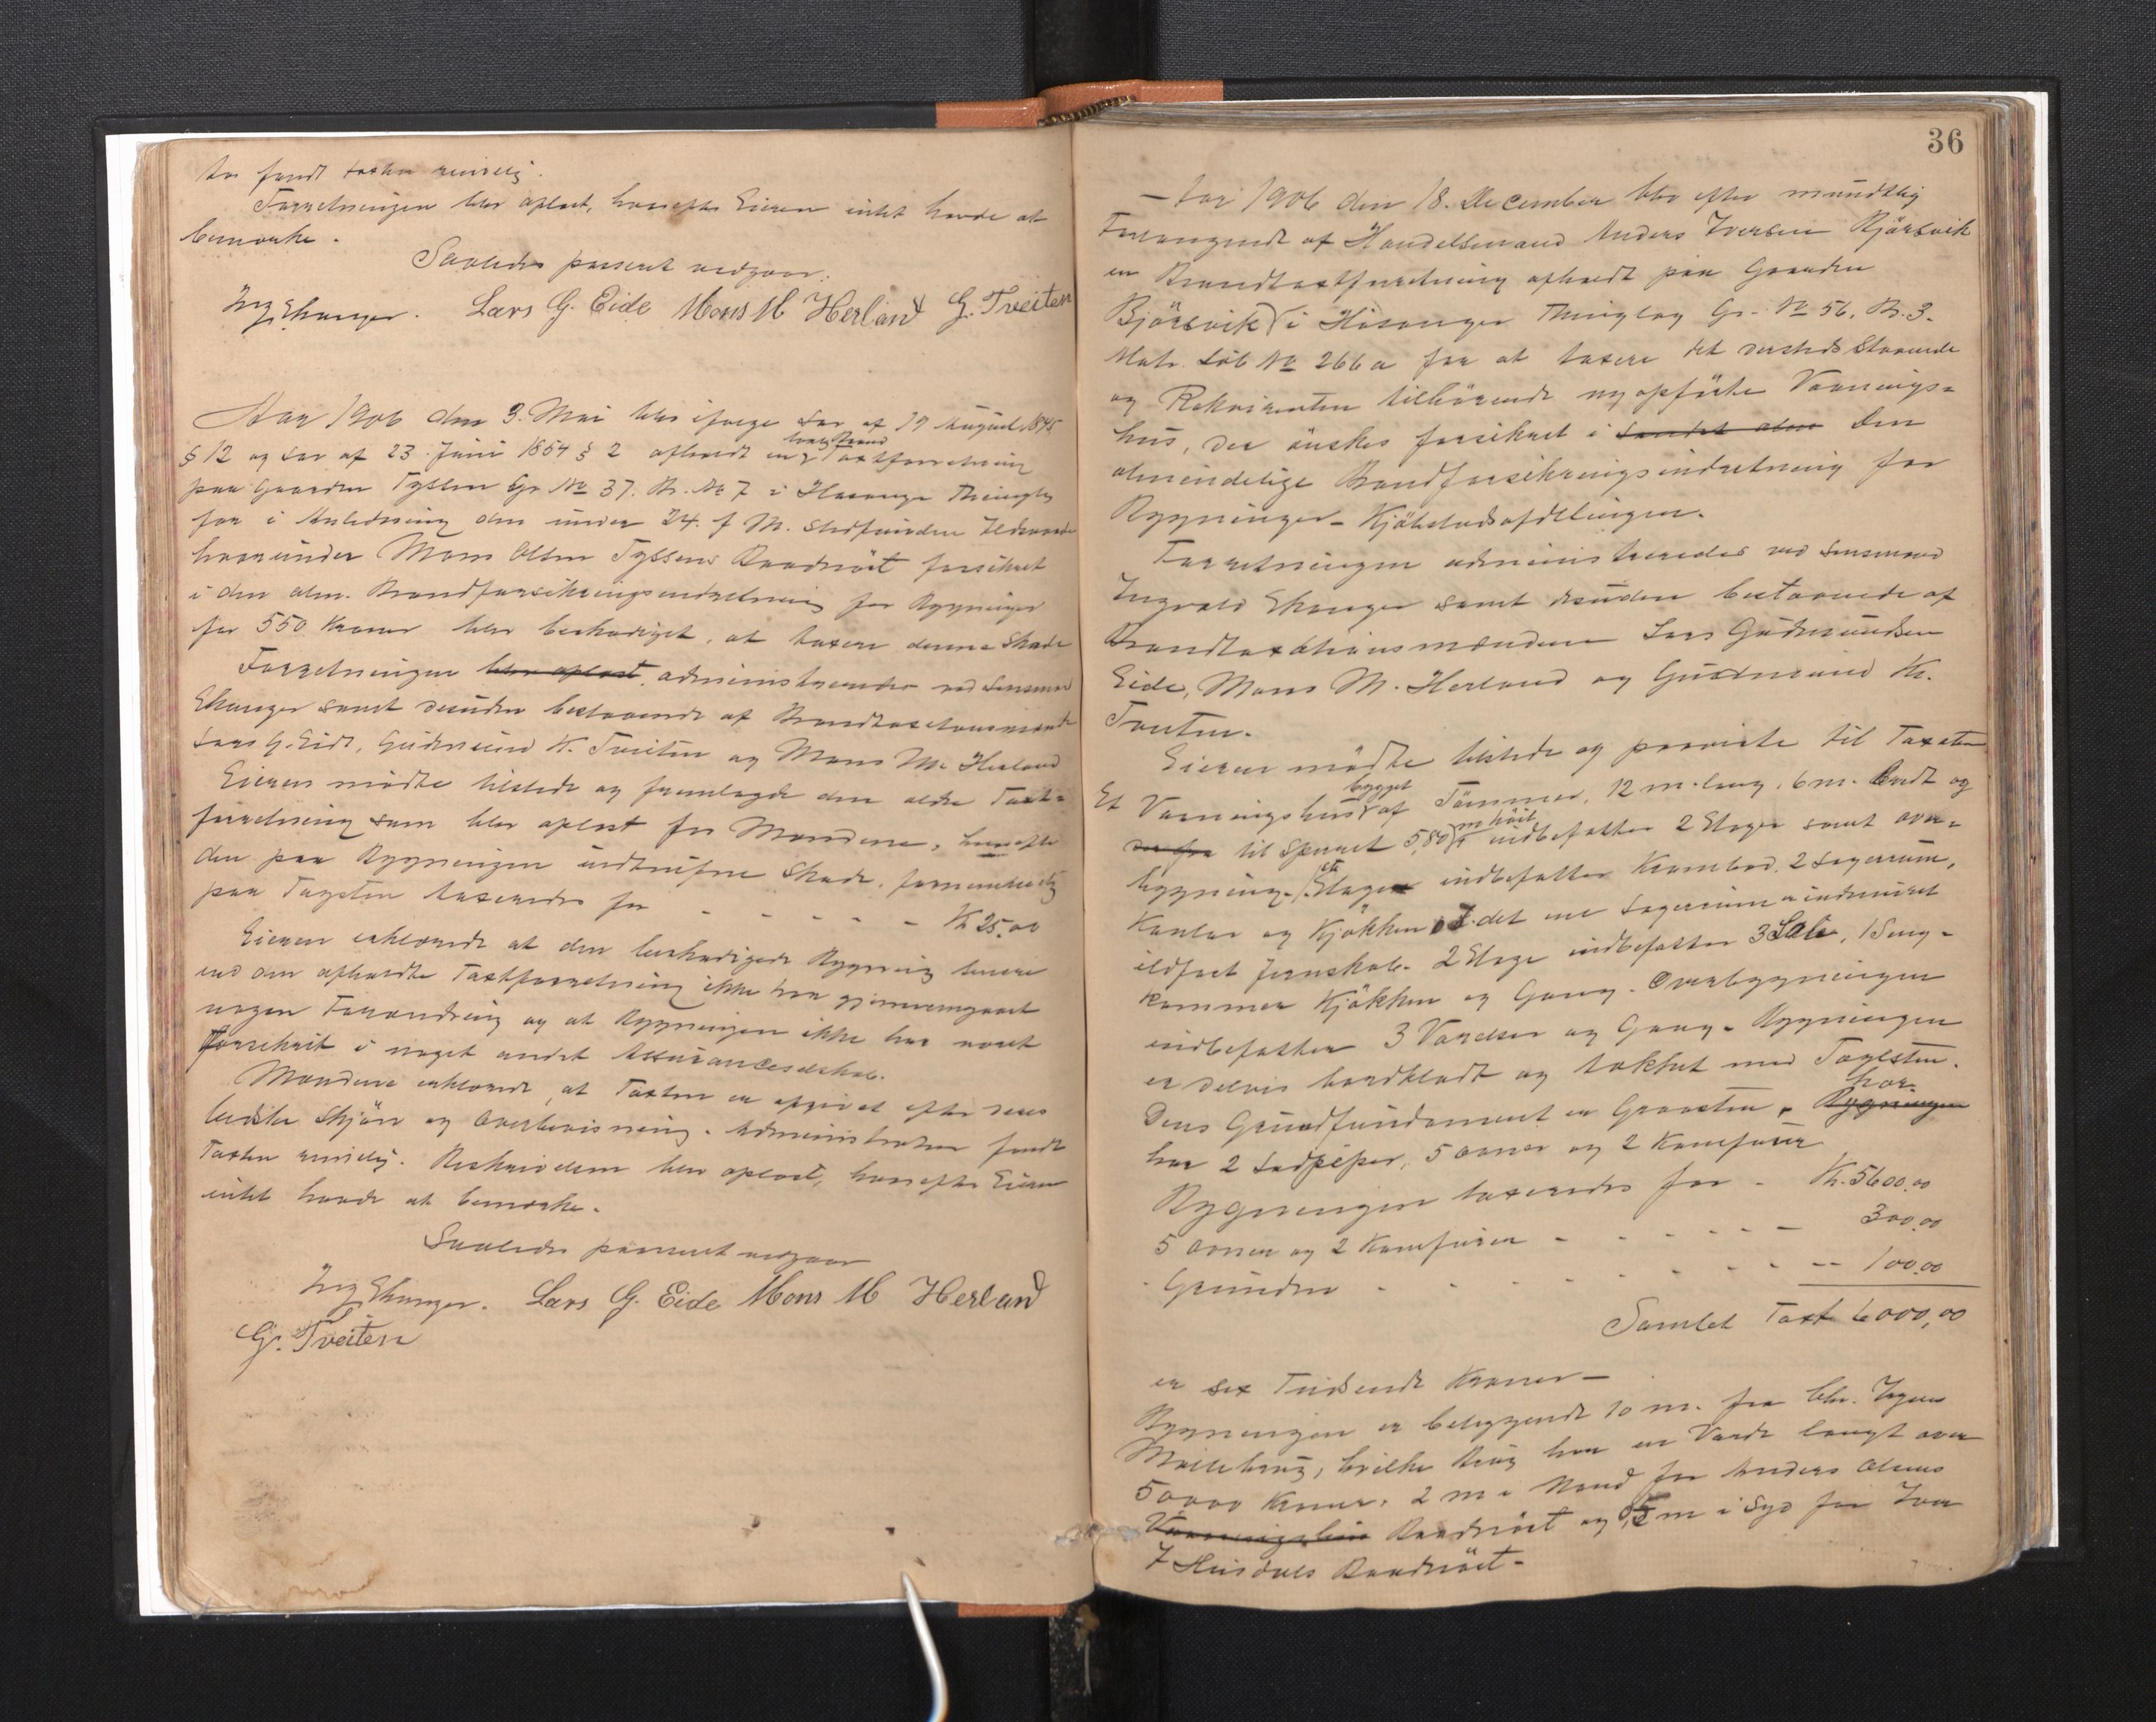 tor fandt taxten rimelig.
Forretningen blev oplæst, hvorefter Eieren intet havde at
bemærke.
Saaledes passeret vedgaar.
Ing Ekanger. Lars G. Eide Mons M Herland G. Tveiten
Aar 1906 den 3. Mai blev ifølge Lov af 19 August 1845
§ 12 og Lov af 23. Juni 1854 § 2 afholdt en Brand
Taxtforretning
paa Gaarden Tyssen Gr. No 37. Br. No 7 i Hosanger Thinglag
for i Anledning den under 24. f. M. stedfundne Ildsvaade
hvorunder Mons Olsen Tyssens Vaadnöst forsikret
i den alm. Brandforsikringsindretning for Bygninger
for 550 Kroner blev beskadiget, at taxere denne Skade
Forretningen blev oplæst administreredes ved Lensmand
Ekanger samt desuden bestaaende af Brandtaxtationsmænd
Lars G. Eide, Gudmund K. Tveiten og Mons M. Herland
Eieren mödte tilstede og fremlagde den ældre Taxt-
forretning som blev oplæst for Mændene, hvorefter
den paa Bygningen indtrufne Skade, fornemmelig
paa Tagsten taxeredes for - - - - - - Kr 25,00
Eieren erklærede at den beskadigede Bygning senere
end den afholdte Taxtforretning ikke har gjennemgaaet
nogen Forandring og at Bygningen ikke har været
forsikret i noget andet Assuranceselskab.
Mændene erklærede, at Taxten er afgivet efter deres
bedste Skjön og Overbevisning. Administrator fandt
Taxten rimelig. Beskrivelsen blev oplæst, hvorefter Eieren
intet havde at bemærke.
Saaledes passeret vedgaar
Ing Ekanger. Lars G. Eide Mons M Herland
G. Tveiten
36
- Aar 1906 den 18. December blev efter mundtlig
Forlangende af Handelsmand Anders Iversen Bjørsvik
en Brandtaxtforretning afholdt paa Gaarden
Bjørsvik i Hosanger Thinglag Gr. No 56. Br. 3.
Matr. Löb No 266a for at taxere det dersteds staaende
og Rekvirenten tilhörende nyopförte Vaanings-
hus, der önskes forsikret i den
almindelige Brandforsikringsindretning for
Bygninger - Kjöbstadsafdelingen.
Forretningen administreredes ved Lensmand
Ingvald Ekanger samt desuden bestaaende af
Brandtaxtationsmændene Lars Gudmundsen
Eide, Mons M. Herland og Gudmund K.
Tveiten.
Eieren mödte tilstede og paaviste til Taxation
bygget
Et Vaaningshus af Tömmer, 12 m. lang, 6 m. bredt og
m höit
til Sperret 5,80 indbefatter 2 Etager samt over-
bygning. 1ste Etage indbefatter Krambod, 2 Lagerrum,
Kontor og Kjökken. I det ene Lagerrum er indmuret
ildfast Jernskab. 2 Etage indbefatter 3 Sale, 1 Seng-
kammer Kjökken og Gang. Overbygningen
indbefatter 3 Værelser og Gang. Bygningen
er delvis bordklædt og tækket med Taglsten.
Dens Grundfundament er Graasten. Bygningen
har 2 Lodpiper, 5 Ovner og 2 Komfurer
Bygningen taxeredes for - Kr. 5600,00
5 Ovner og 2 Komfurer - - - - - 300,00
Grunden - - - - - - - - 100,00
Samlet Taxt 6000,00
er sex Tusende Kroner -
Bygningen er beliggende 10 m. fra
hvilke Brug har en Værdi langt over
50000 Kroner, 2 m i Nord for Anders Olsens
Vaaningshus Vaadnöst og m i Syd for Iver
Husdals Vaadnöst.